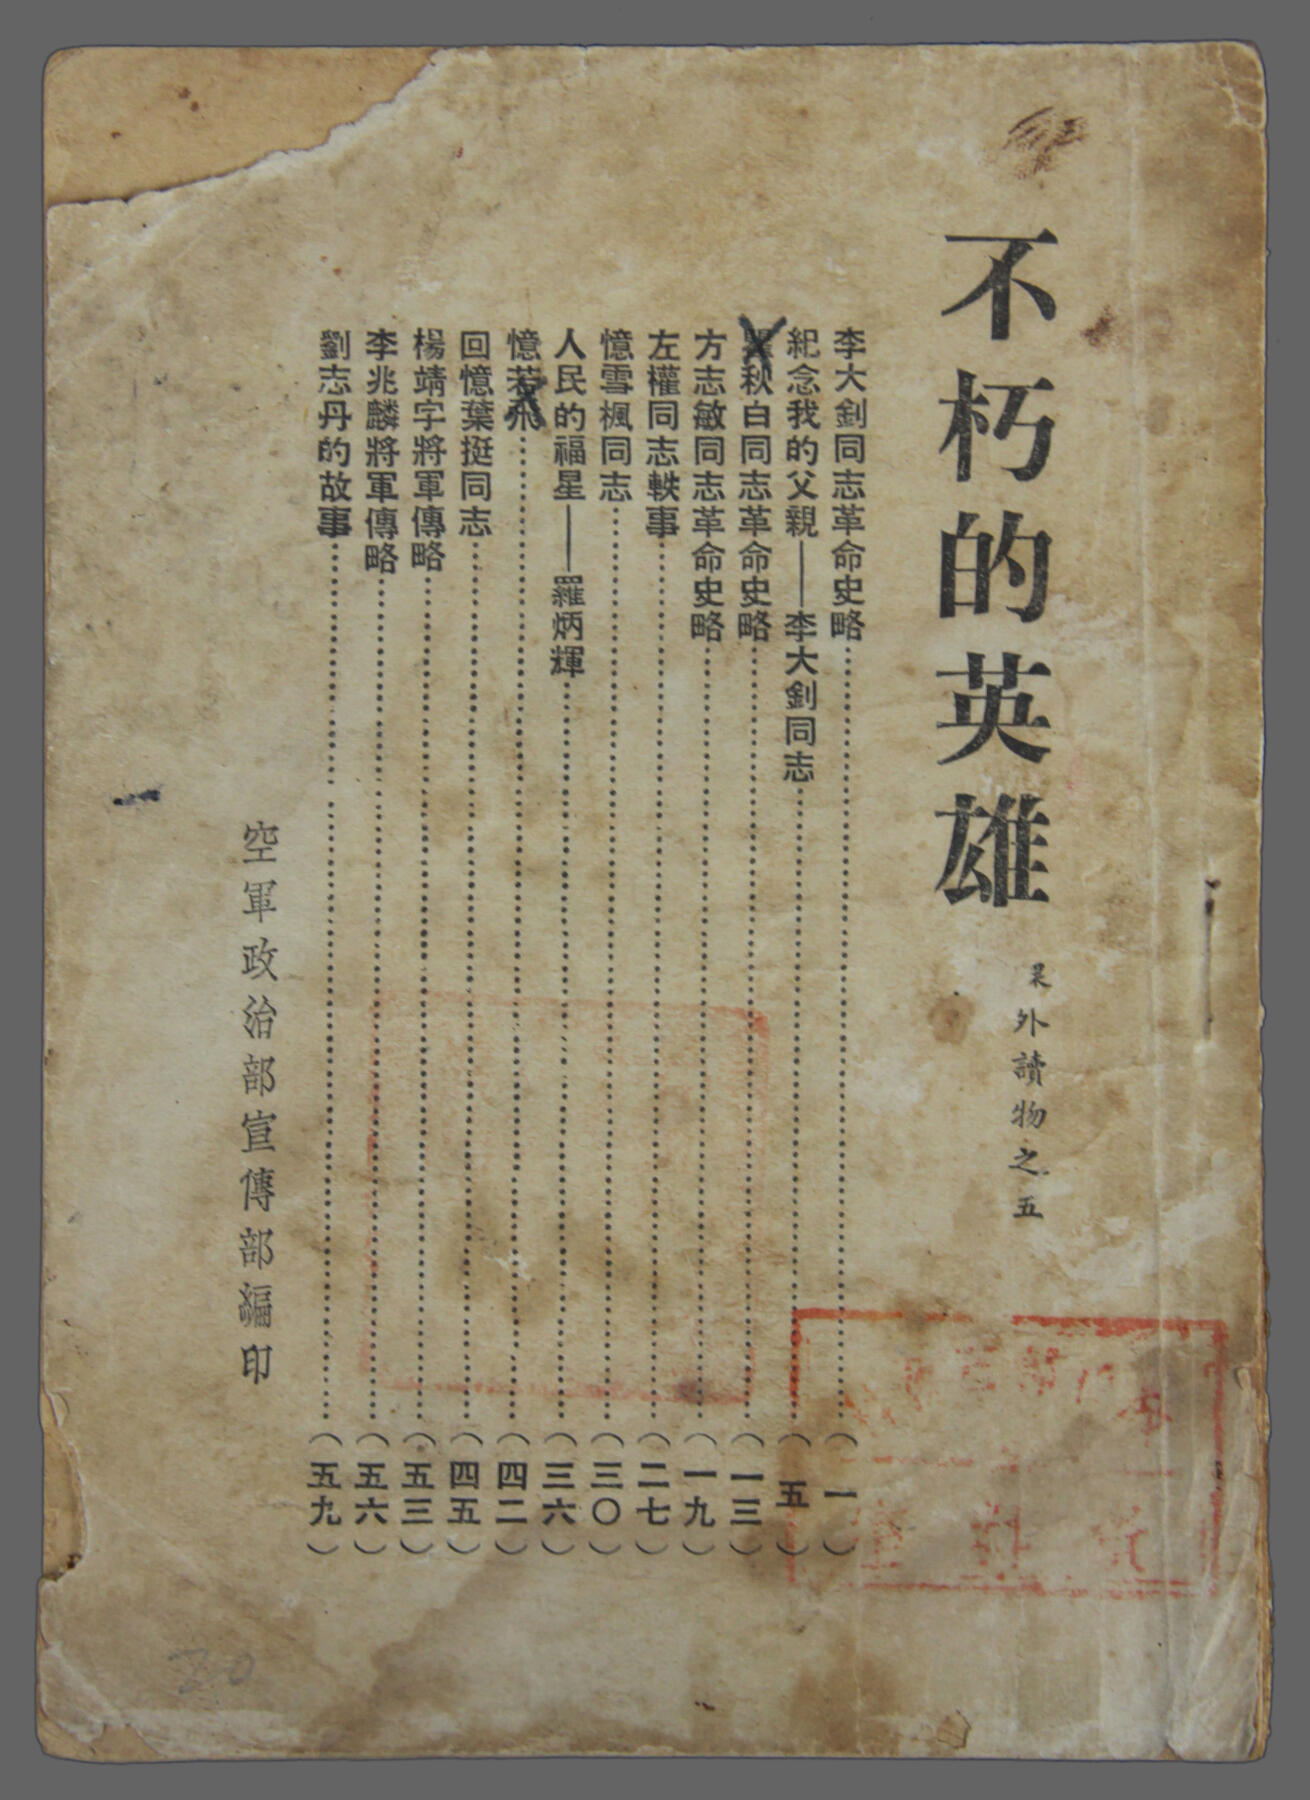 不朽的英雄
課外讀物之五
李大釗同志革命史略……(一)
紀念我的父親——李大釗同志……(五)
瞿秋白同志革命史略……(一三)
方志敏同志革命史略……(一九)
左權同志軼事……(二七)
憶雪楓同志……(三〇)
人民的福星——羅炳輝……(三六)
憶若飛……(四二)
回憶葉挺同志……(四五)
楊靖宇將軍傳略……(五三)
李兆麟將軍傳略……(五六)
劉志丹的故事……(五九)
空軍政治部宣傳部編印
20